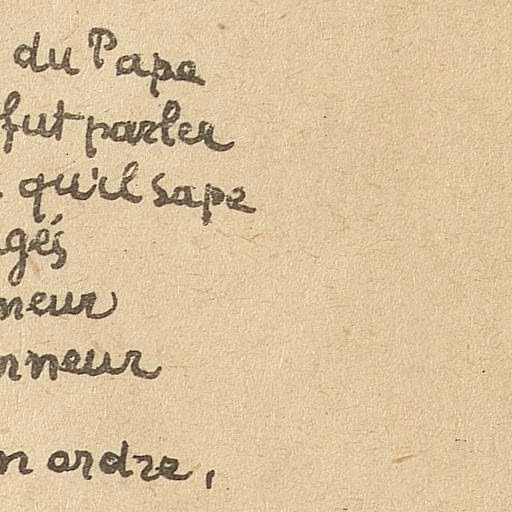 du Pape
fut parler
qu'il sape
gés
neur
nneur
n ordre,